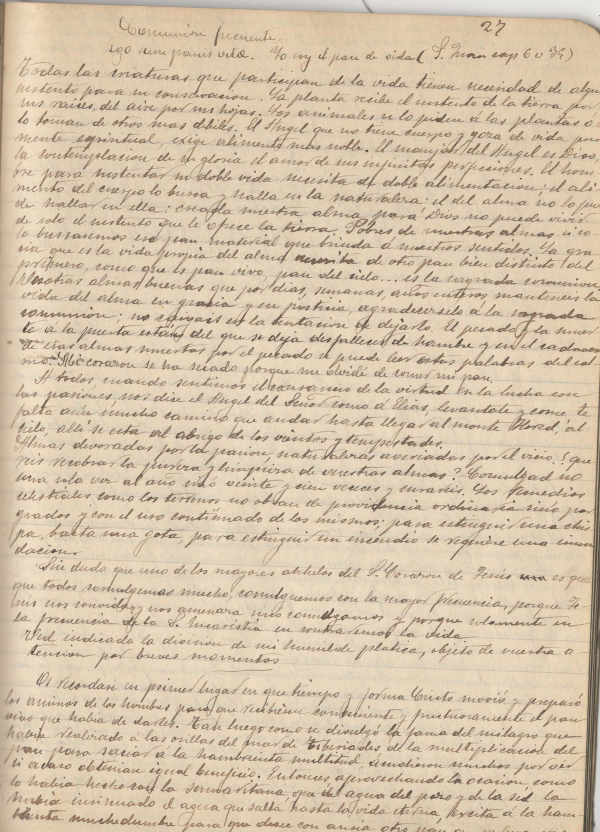 27
Comunion frecuente.
Ego sum panis vitæ. Yo soy el pan de vida (S. Juan cap 6 v 35)
Todas las criaturas que participan de la vida tienen necesidad de algun
sustento para su conservacion. La planta recibe el sustento de la tierra por
sus raices, del aire por sus hojas. Los animales o lo piden á las plantas ó
lo toman de otros mas débiles. El Angel que no tiene cuerpo y goza de vida pura
mente espiritual, exige alimento mas noble. El manjar del Angel es Dios,
la contemplacion de su gloria el amor de sus infinitas perfecciones. El hom
bre para sustentar su doble vida necesita de doble alimentacion; el ali
mento del cuerpo lo busca y halla en la naturaleza: el del alma no lo pue
de hallar en ella: creada nuestra alma para Dios no puede vivir
de solo el sustento que le ofrece la tierra. Pobres de nuestras almas si so
lo buscasemos ese pan material que brinda á nuestros sentidos. La gra
cia que es la vida propia del alma necesita de otro pan bien distinto del
primero, como que es pan vivo, pan del cielo... es la sagrada comunion,
Vosotras almas buenas que por dias, semanas, años enteros manteneis la
vida del alma en gracia y en justicia, agradecedselo á la sagrada
comunion; no caigais en la tentacion de dejarlo. El pecado y la muer
te á la puerta están del que se deja desfallecer de hambre y en el cadaver
de esas almas muertas por el pecado se puede leer estas palabras del sal
mo: Mi corazon se ha secado porque me olvidé de comer mi pan.
A todos, cuando sentimos el cansancio de la virtud en la lucha con
las pasiones, nos dice el Angel del Señor como á Elias, levantate y come te
falta aun mucho camino que andar hasta llegar al monte Horeb, al
cielo, alli se está al abrigo de los vientos y tempestades.
Almas devoradas por la pasion, naturalezas averiadas por el vicio ¿que
reis recobrar la pureza y limpieza de vuestras almas? Comulgad no
una sola vez al año sino veinte y cien veces y curareis. Los remedios
celestiales como los terrenos no obran de providencia ordinaria sino por
grados y con el uso continuado de los mismos: para extinguir una chis
pa, basta una gota, para extinguir un incendio se requiere una inun
dacion.
Sin duda que uno de los mayores anhelos del S. Corazon de Jesús es que
que todos comulguemos mucho, comulguemos con la mayor frecuencia, porque Je
sús nos convida y nos amenaza sino comulgamos y porque solamente en
la frecuencia de la S. Eucaristia encontraremos la vida
Ved indicada la division de mi humilde platica, objeto de vuestra a
tencion por breves momentos
Os recordaré en primer lugar en que tiempo y forma Cristo movió y preparó
los animos de los hombres para que recibiesen conveniente y fructuosamente el pan
vivo que habia de darles. Tan luego como se divulgó la fama del milagro que
habia realizado á las orillas del mar de Tiberiades de la multiplicacion del
pan para saciar á la hambrienta multitud, acudieron muchos por ver
si acaso obtenian igual beneficio. Entonces aprovechando la ocasion, como
lo habia hecho con la samaritana que del agua del pozo y de la sed la
habia insinuado el agua que salta hasta la vida eterna, incita á la ham
brienta muchedumbre para que desee con ansia otro pan